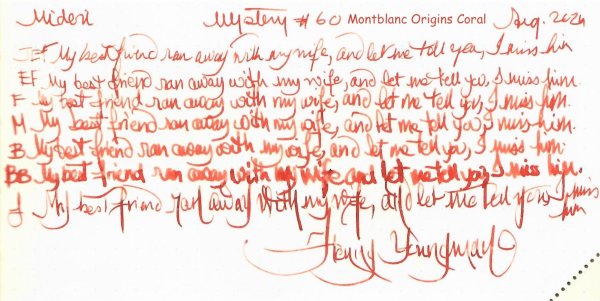 Midori Mystery # 60 Montblanc Origins Coral Aug. 2024
JEF My best friend ran away with my wife, and let me tell you, I miss him
EF My best friend ran away with my wife, and let me tell you, I miss him.
F My best friend ran away with my wife, and let me tell you, I miss him.
M My best friend ran away with my wife, and let me tell you, I miss him.
B My best friend ran away with my wife, and let me tell you, I miss him.
BB My best friend ran away with my wife and let me tell you, I miss him.
J My best friend ran away with my wife, and let me tell you I miss him
Henny Youngman